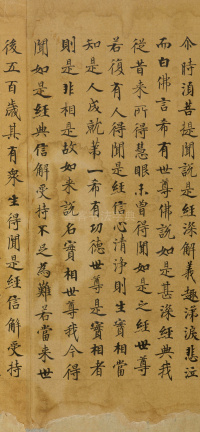 尒時須菩提聞說是經深解義趣涕淚悲泣
而白佛言希有世尊佛說如是甚深經典我
從昔來所得慧眼未曾得聞如是之經世尊
若復有人得聞是經信心清淨則生實相當
知是人成就第一希有功德世尊是實相者
則是非相是故如來說名實相世尊我今得
聞如是經典信解受持不足為難若當來世
後五百歲其有衆生得聞是經信解受持